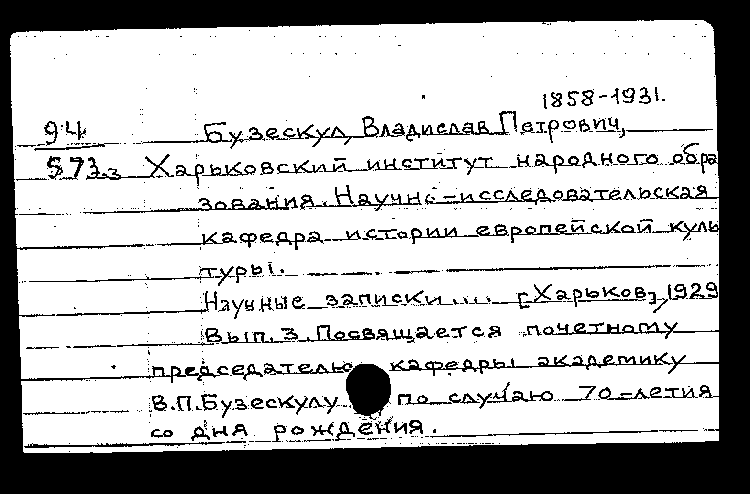 1858-1931.
94 Бузескул, Владислав Петрович,
573.з Харьковский институт народного обра
зования. Научно-исследовательская
кафедра истории европейской куль
туры.
Научные записки.... [Харьков], 1929
Вып. 3. Посвящается почетному
председателю кафедры академику
В.П.Бузескулу по случаю 70-летия
со дня рождения.